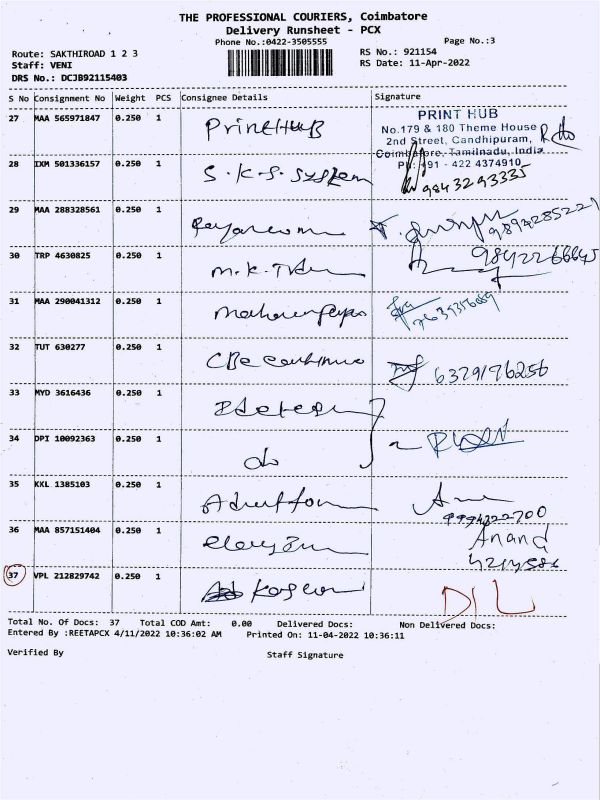 THE PROFESSIONAL COURIERS, Coimbatore
Delivery Runsheet - PCX
Phone No.:0422-3505555 Page No.:3
Route: SAKTHIROAD 1 2 3 RS No.: 921154
Staff: VENI RS Date: 11-Apr-2022
DRS No.: DCJB92115403
S No Consignment No Weight PCS Consignee Details Signature
27 MAA 565971847 0.250 1 PrintHUB
PRINT HUB
No.179 & 180 Theme House
2nd Street, Gandhipuram,
Coimbatore, Tamilnadu, India
Ph: +91 - 422 4374910
28 IXM 501336157 0.250 1 S.K.S. System 9843293335
29 MAA 288328561 0.250 1
30 TRP 4630825 0.250 1 M.K.
31 MAA 290041312 0.250 1
32 TUT 630277 0.250 1 CBe 6379176256
33 MYD 3616436 0.250 1
34 DPI 10092363 0.250 1 do
35 KKL 1385103 0.250 1
36 MAA 857151404 0.250 1 Anand
37 VPL 212829742 0.250 1 DIL
Total No. Of Docs: 37 Total COD Amt: 0.00 Delivered Docs: Non Delivered Docs:
Entered By :REETAPCX 4/11/2022 10:36:02 AM Printed On: 11-04-2022 10:36:11
Verified By Staff Signature